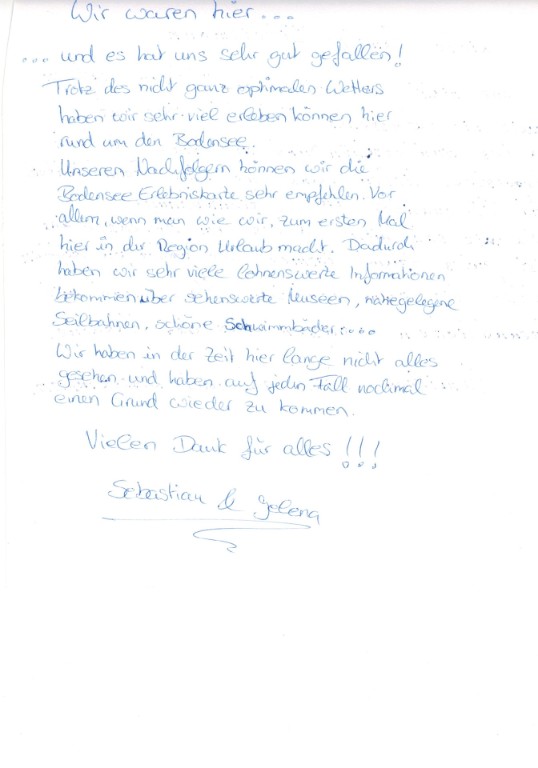 Wir waren hier...
... und es hat uns sehr gut gefallen!
Trotz des nicht ganz optimalen Wetters
haben wir sehr viel erleben können hier
rund um den Bodensee.
Unseren Nachfolgern können wir die
Bodensee Erlebniskarte sehr empfehlen. Vor
allem, wenn man wie wir, zum ersten Mal
hier in der Region Urlaub macht. Dadurch
haben wir sehr viele lohnenswerte Informationen
bekommen über sehenswerte Museen, nahegelegene
Seilbahnen, schöne Schwimmbäder....
Wir haben in der Zeit hier lange nicht alles
gesehen und haben auf jeden Fall nochmal
einen Grund wieder zu kommen.
Vielen Dank für alles!!!
Sebastian & Jelena